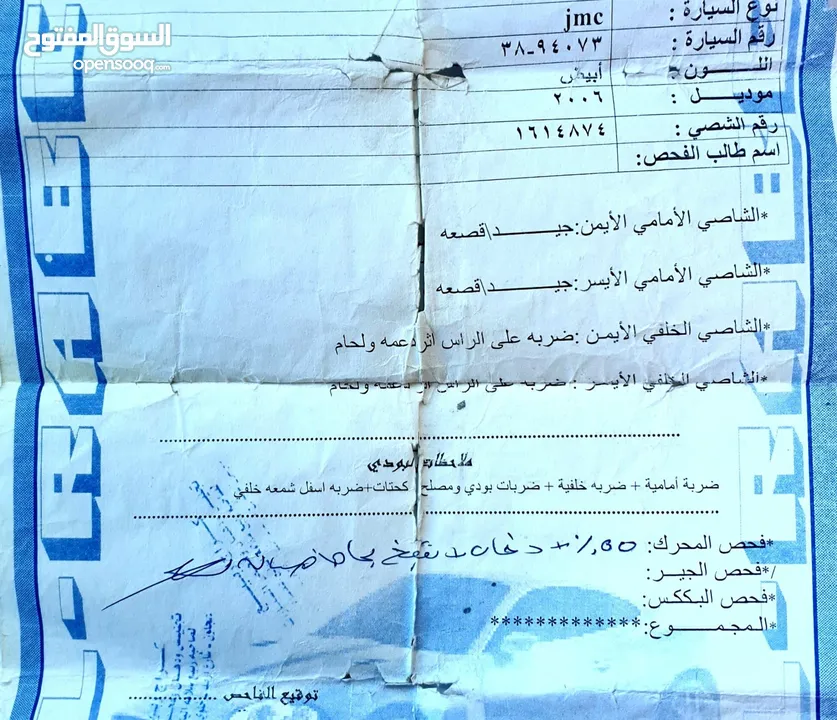 السوق المفتوح
opensooq.com
نوع السيارة : jmc
رقم السيارة : ٣٨-٩٤٠٧٣
اللـــون : أبيض
موديـــل : ٢٠٠٦
رقم الشصي : ١٦١٤٨٧٤
اسم طالب الفحص:
*الشاصي الأمامي الأيمن:جيـــــد\قصعه
*الشاصي الأمامي الأيسر:جيـــــد\قصعه
*الشاصي الخلفي الأيمن :ضربه على الراس اثر دعمه ولحام
*الشاصي الخلفي الأيسر : ضربه على الراس اثر دعمه ولحام
ملاحظات البودي
ضربة أمامية + ضربه خلفية + ضربات بودي ومصلح كحتات+ضربه اسفل شمعه خلفي
*فحص المحرك: ٥٥٪ + دخان
*فحص الجير:
*فحص البككس:
*المجمـــوع:*************
توقيع الفاحص
L-RABEE